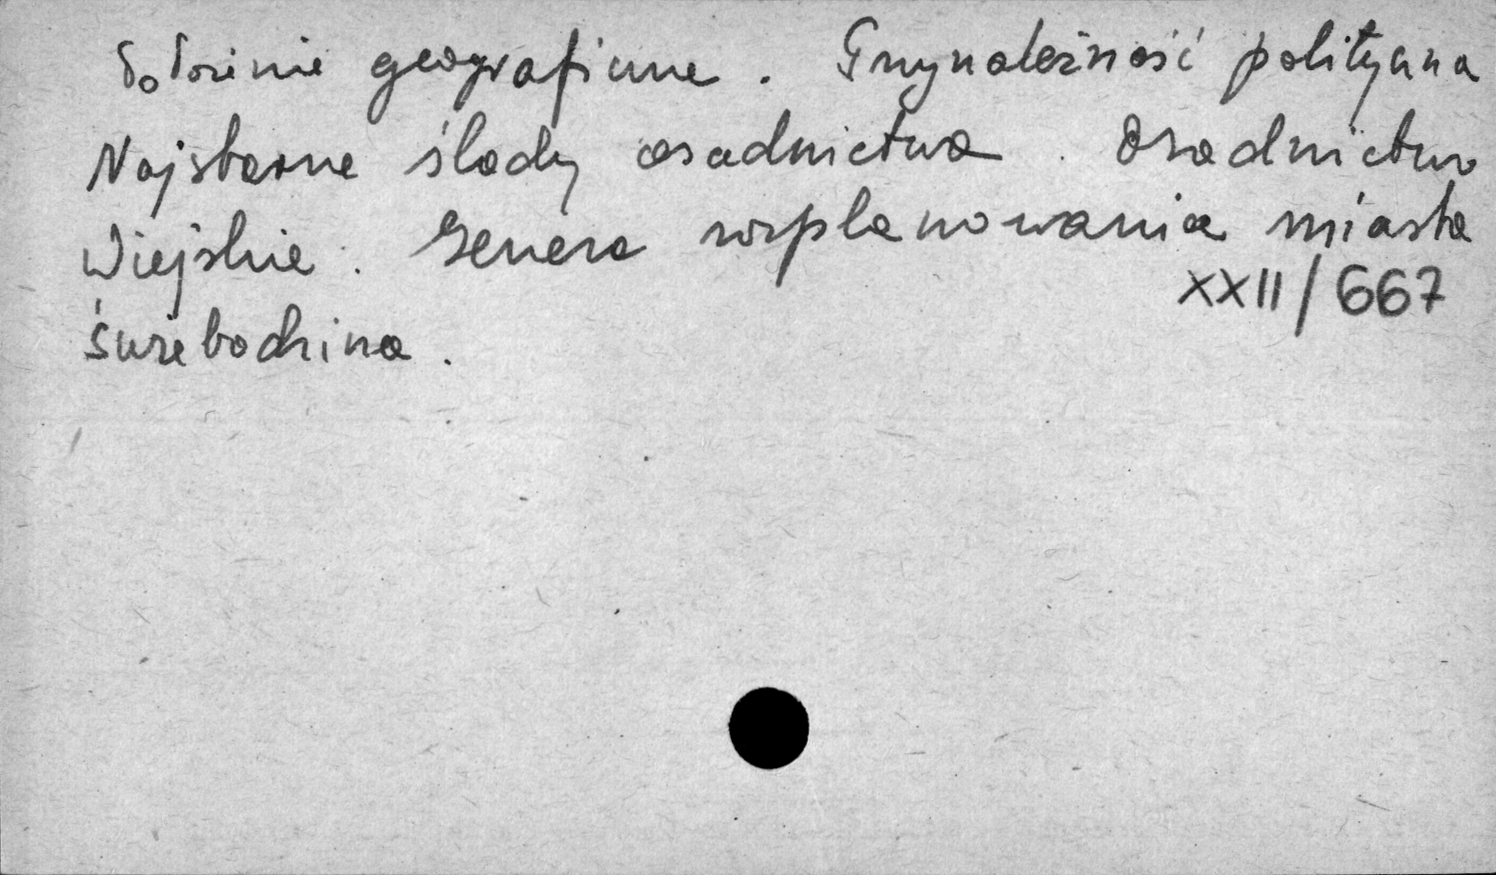 Położenie geograficzne. Przynależność polityczna
Najstarsze ślady osadnictwa. Osadnictwo
Wiejskie. Geneza rozplanowania miasta
XXII/667
Świebodzina.